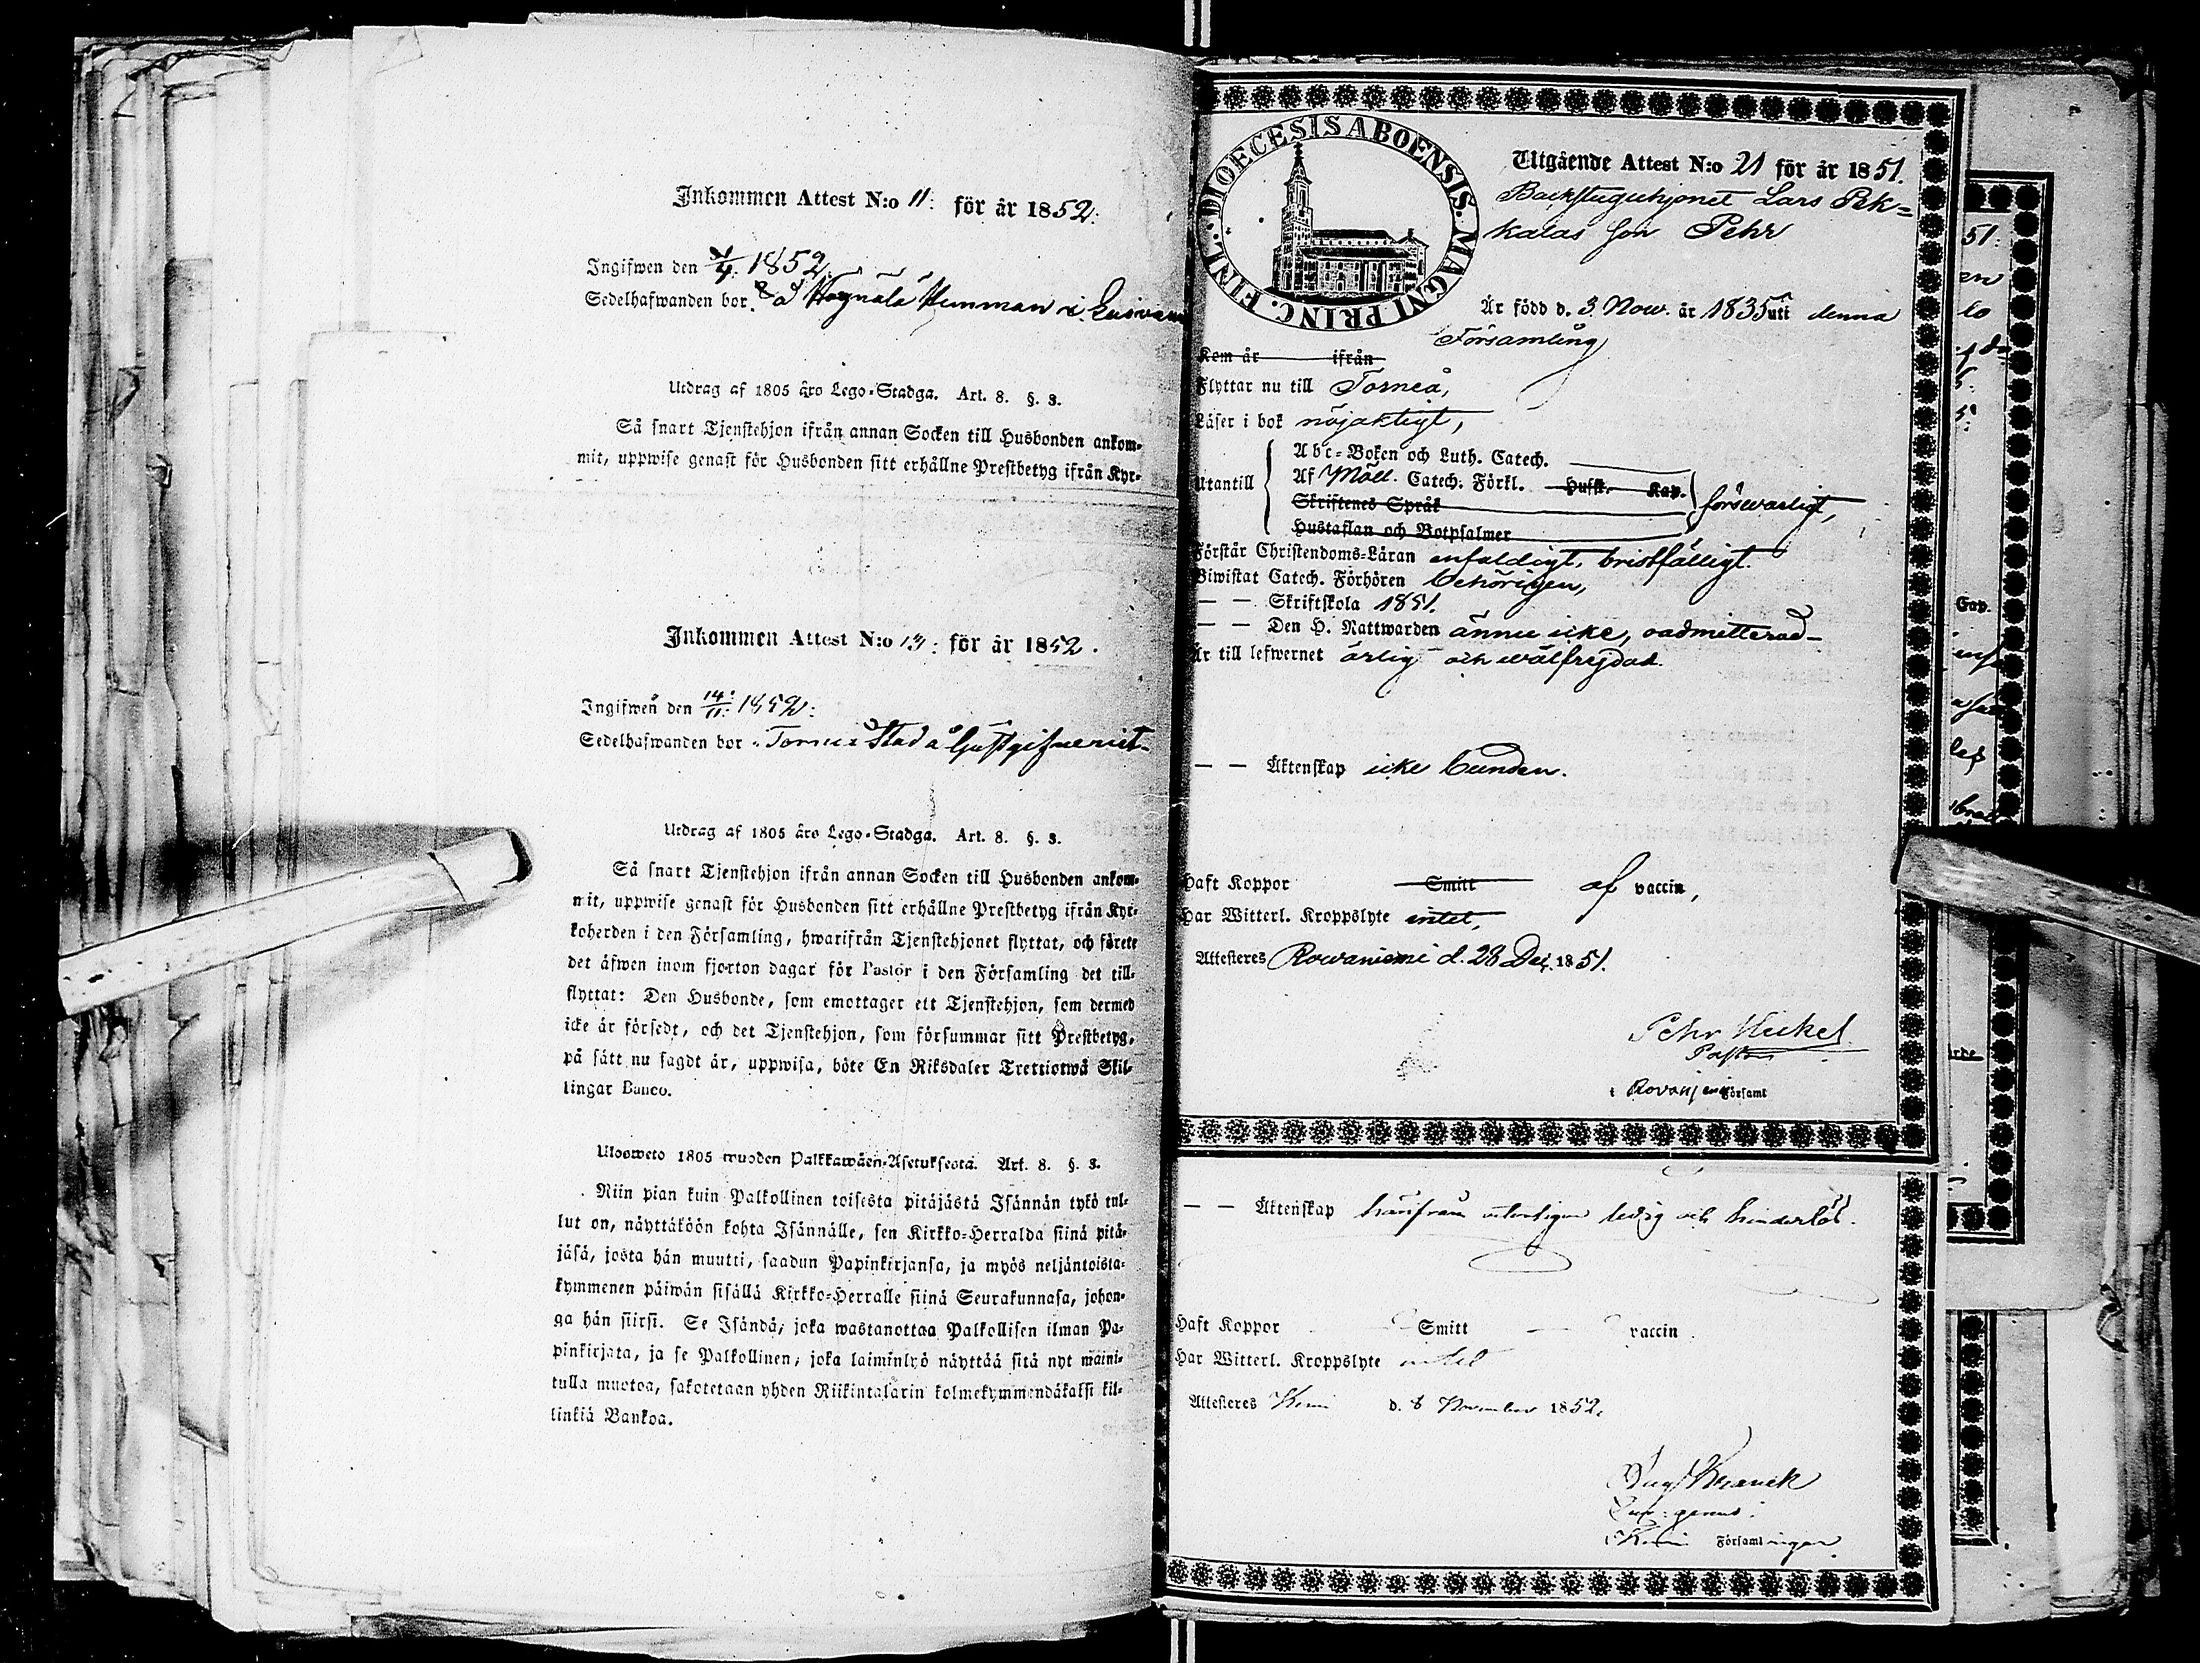 Inkommen Attest N:o 11: för år 1852:
Ingifwen den 1852.
Sedelhafwanden bor å Hemman i
Utdrag af 1805 års Lego-Stadga. Art. 8. §. 3.
Så snart Tjenstehjon ifrån annan Socken till Husbonden ankom-
mit, uppwise genast för Husbonden sitt erhållne Prestbetyg ifrån Kyr-
Inkommen Attest N:o 13: för år 1852.
Ingifwen den 14/11: 1852:
Sedelhafwanden bor i Torneå Stad å Gästgifveriet
Utdrag af 1805 års Lego-Stadga. Art. 8. §. 3.
Så snart Tjenstehjon ifrån annan Socken till Husbonden ankom-
mit, uppwise genast för Husbonden sitt erhållne Prestbetyg ifrån Kyr-
koherden i den Församling, hwarifrån Tjenstehjonet flyttat, och förete
det äfwen inom fjorton dagar för Pastor i den Församling det till-
flyttat: Den Husbonde, som emottager ett Tjenstehjon, som dermed
icke är försedt, och det Tjenstehjon, som försummar sitt Prestbetyg,
på sätt nu sagdt är, uppwisa, böte En Riksdaler Trettiotwå Skil-
lingar Banco.
Ulosweto 1805 wuoden Palkkawäen-Asetuksesta. Art. 8. §. 3.
Niin pian kuin Palkollinen toisesta pitäjästä Isännän tykö tul-
lut on, näyttäköön kohta Isännälle, sen Kirkko-Herralda siinä pitä-
jäsä, josta hän muutti, saadun Papinkirjansa, ja myös neljäntoista-
kymmenen päiwän sisällä Kirkko-Herralle siinä Seurakunnasa, johon-
ga hän siirsi. Se Isändä, joka wastanottaa Palkollisen ilman Pa-
pinkirjata, ja se Palkollinen, joka laiminlyö näyttää sitä nyt maini-
tulla muotoa, sakotetaan yhden Riikintalarin kolmekymmendäkaksi kil-
linkiä Bankoa.
DIOECESIS ABOENSIS. MAGNI PRINC. FINL.
Utgående Attest N:o 21 för år 1851.
Backstuguhjonet Lars Pek-
kalas son Pehr
Är född d. 3 Nov. år 1835 uti denna
Församling
Kom år ifrån
Flyttar nu till Torneå,
Läser i bok nöjaktigt,
Abc-Boken och Luth. Catech.
Utantill Af Möll. Catech. Förkl. Huss. Kap. försvarligt,
Skriftenes Språk
Hustaflan och Botpsalmer
Förstår Christendoms-Läran enfaldigt, bristfälligt.
Biwistat Catech. Förhören behörigen,
— — Skriftskola 1851.
— — Den H. Nattwarden ännu icke, oadmitterad
Är till lefwernet ärlig och wälfrejdad.
— — Äktenskap icke bunden.
Haft Koppor Smitt af vaccin,
Har Witterl. Kroppslyte intet,
Attesteres Rowaniemi d. 28 Dec. 1851.
Pehr Heikel
Pastor
i Rovaniemi Församl
— — Äktenskap härifrån ledig och hinderlös.
Haft Koppor Smitt vaccin
Har Witterl. Kroppslyte intet
Attesteres Kemi d. 8 November 1852.
i Kemi Församlingar.